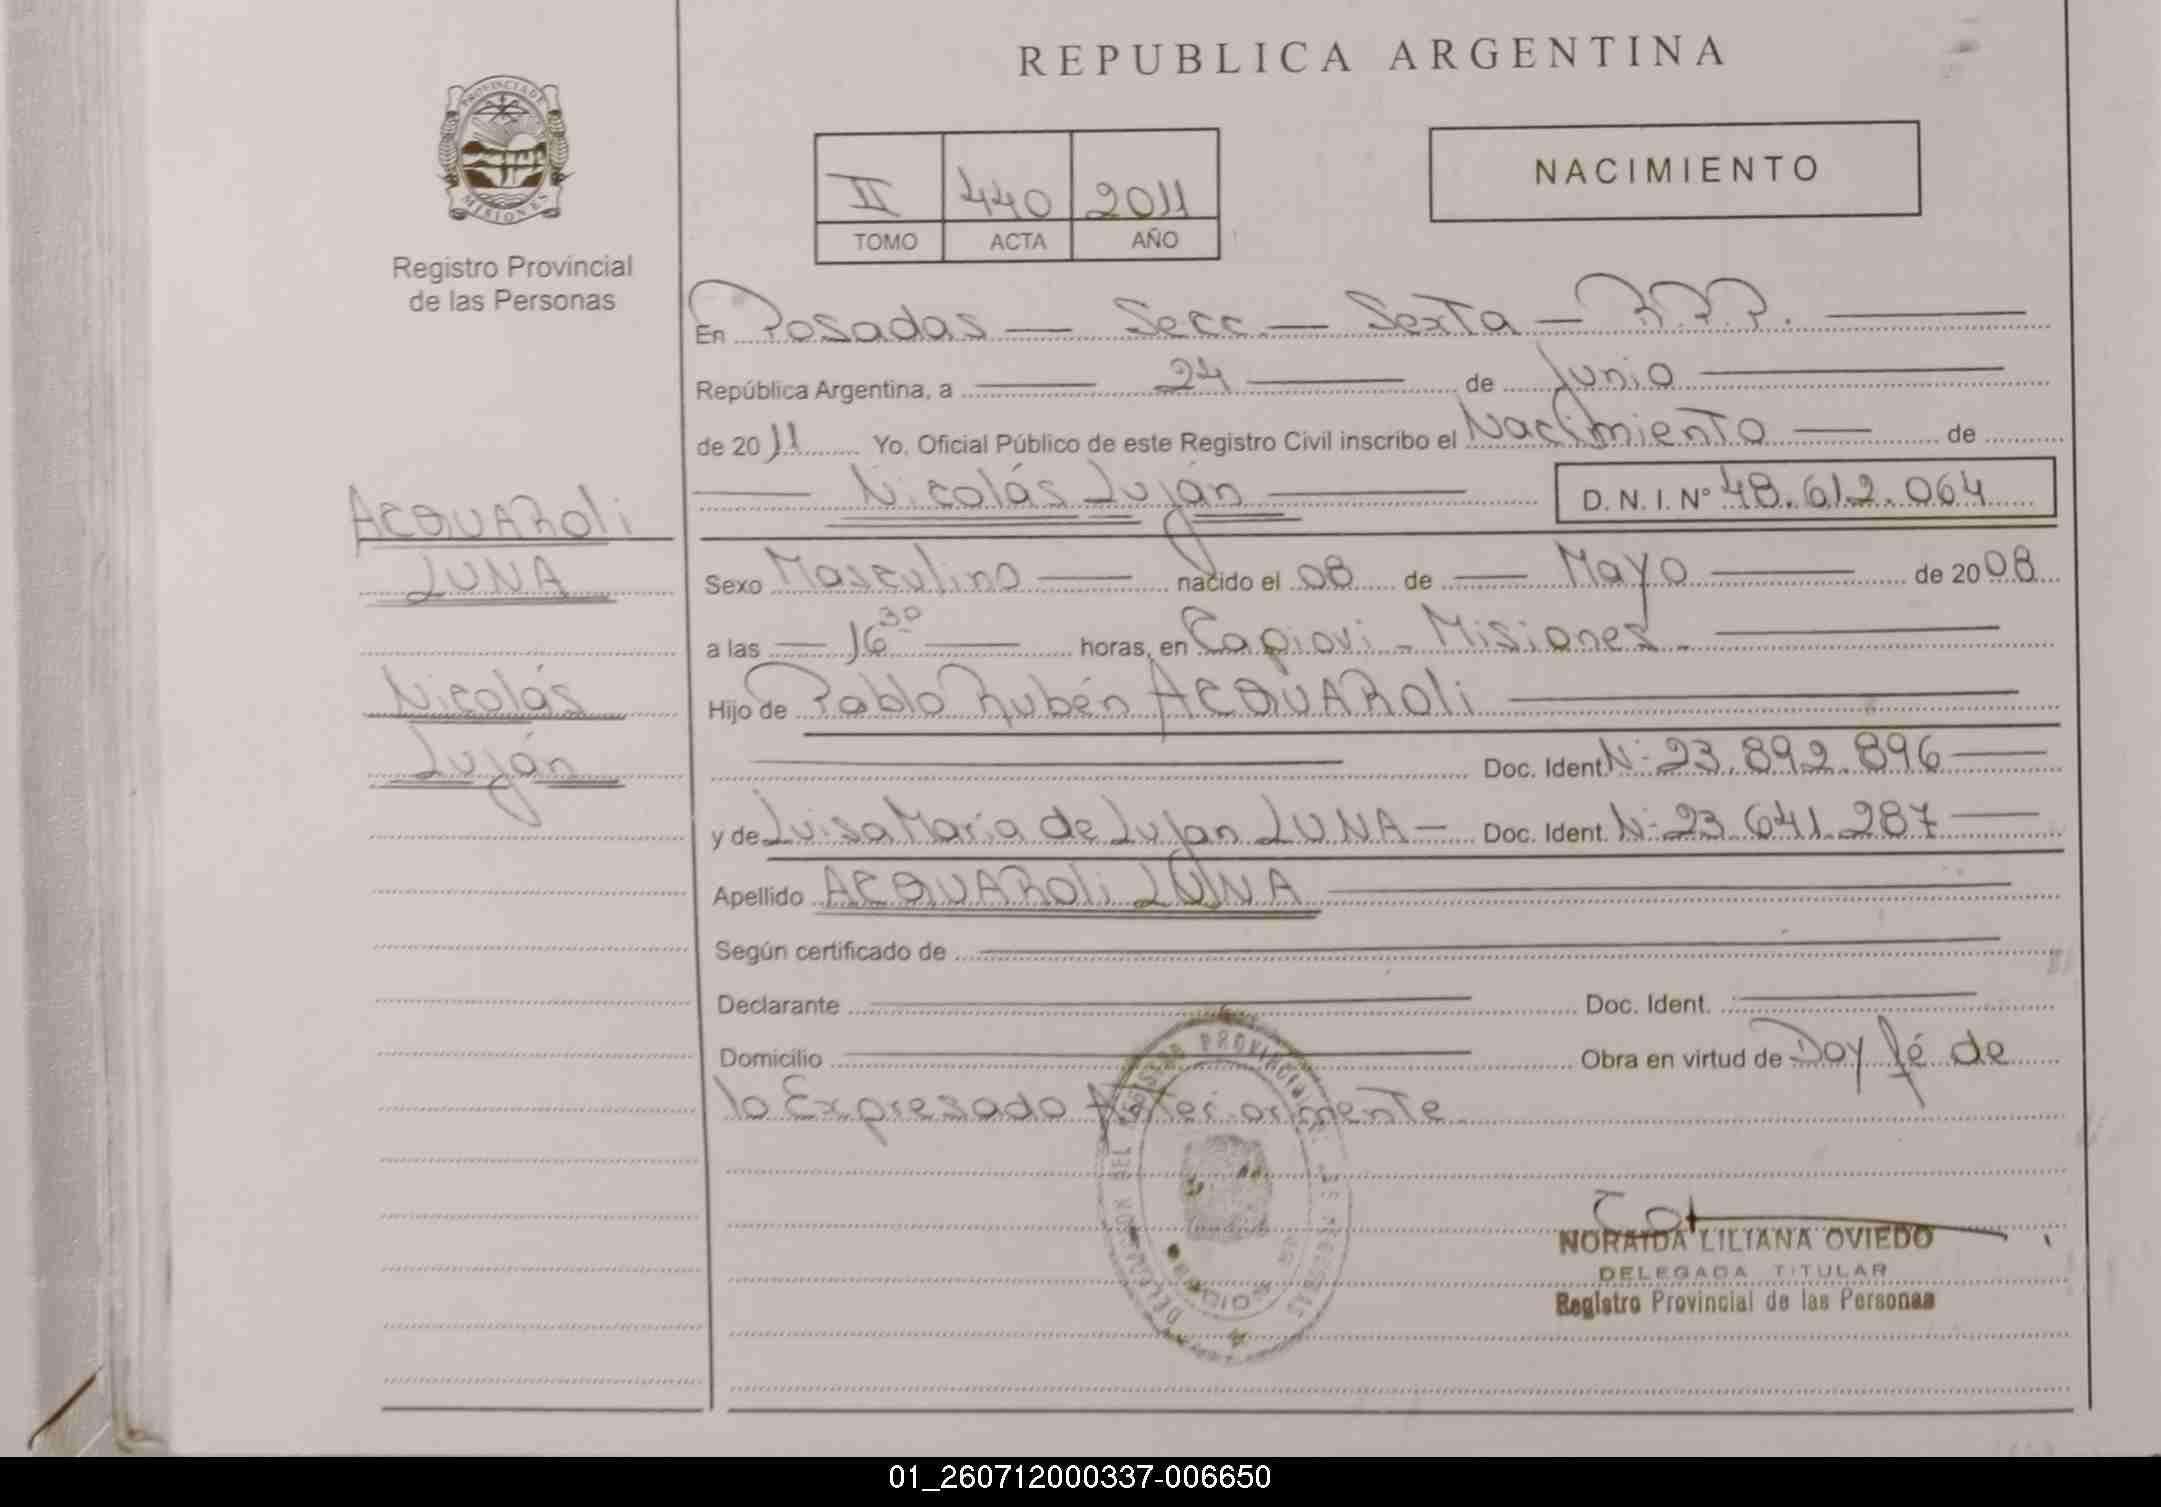 REPUBLICA ARGENTINA
PROVINCIA DE MISIONES
Registro Provincial
de las Personas
II 440 2011
TOMO ACTA AÑO
NACIMIENTO
En Posadas — Secc — Sexta — R.P.P.
República Argentina, a 24 de Junio
de 2011 Yo, Oficial Público de este Registro Civil inscribo el Nacimiento de
Nicolás Luján D. N. I. Nº 48.612.064
ACQUAROLi
LUNA
Nicolás
Luján
Sexo Masculino nacido el 08 de Mayo de 2008
a las 16 30 horas, en Capiovi - Misiones
Hijo de Pablo Rubén ACQUAROLi
Doc. Ident. Nº 23.892.896
y de Luisa María de Lujan LUNA — Doc. Ident. Nº 23.641.287
Apellido ACQUAROLi LUNA
Según certificado de
Declarante Doc. Ident.
Domicilio Obra en virtud de Doy fé de
lo Expresado Anteriormente
NORAIDA LILIANA OVIEDO
DELEGADA TITULAR
Registro Provincial de las Personas
01_260712000337-006650